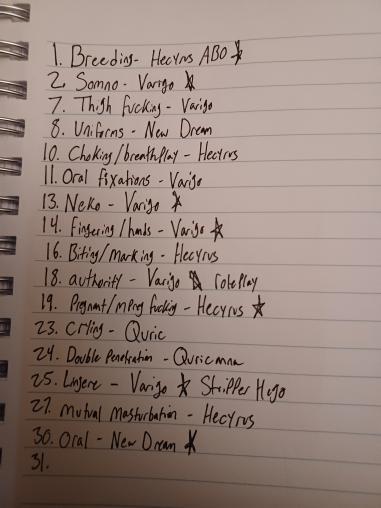 1. Breeding- Hecyrus ABO
2. Somno - Varigo
7. Thigh fucking - Varigo
8. Uniforms - New Dream
10. Choking/breathplay - Hecyrus
11. Oral fixations - Varigo
13. Neko - Varigo
14. Fingering/hands - Varigo
16. Biting/marking - Hecyrus
18. authority - Varigo roleplay
19. Pregnant/mpreg fucking - Hecyrus
23. Crying - Quric
24. Double Penetration - Quricanna
25. Lingere - Varigo Stripper Hugo
27. Mutual Masturbation - Hecyrus
30. Oral - New Dream
31.